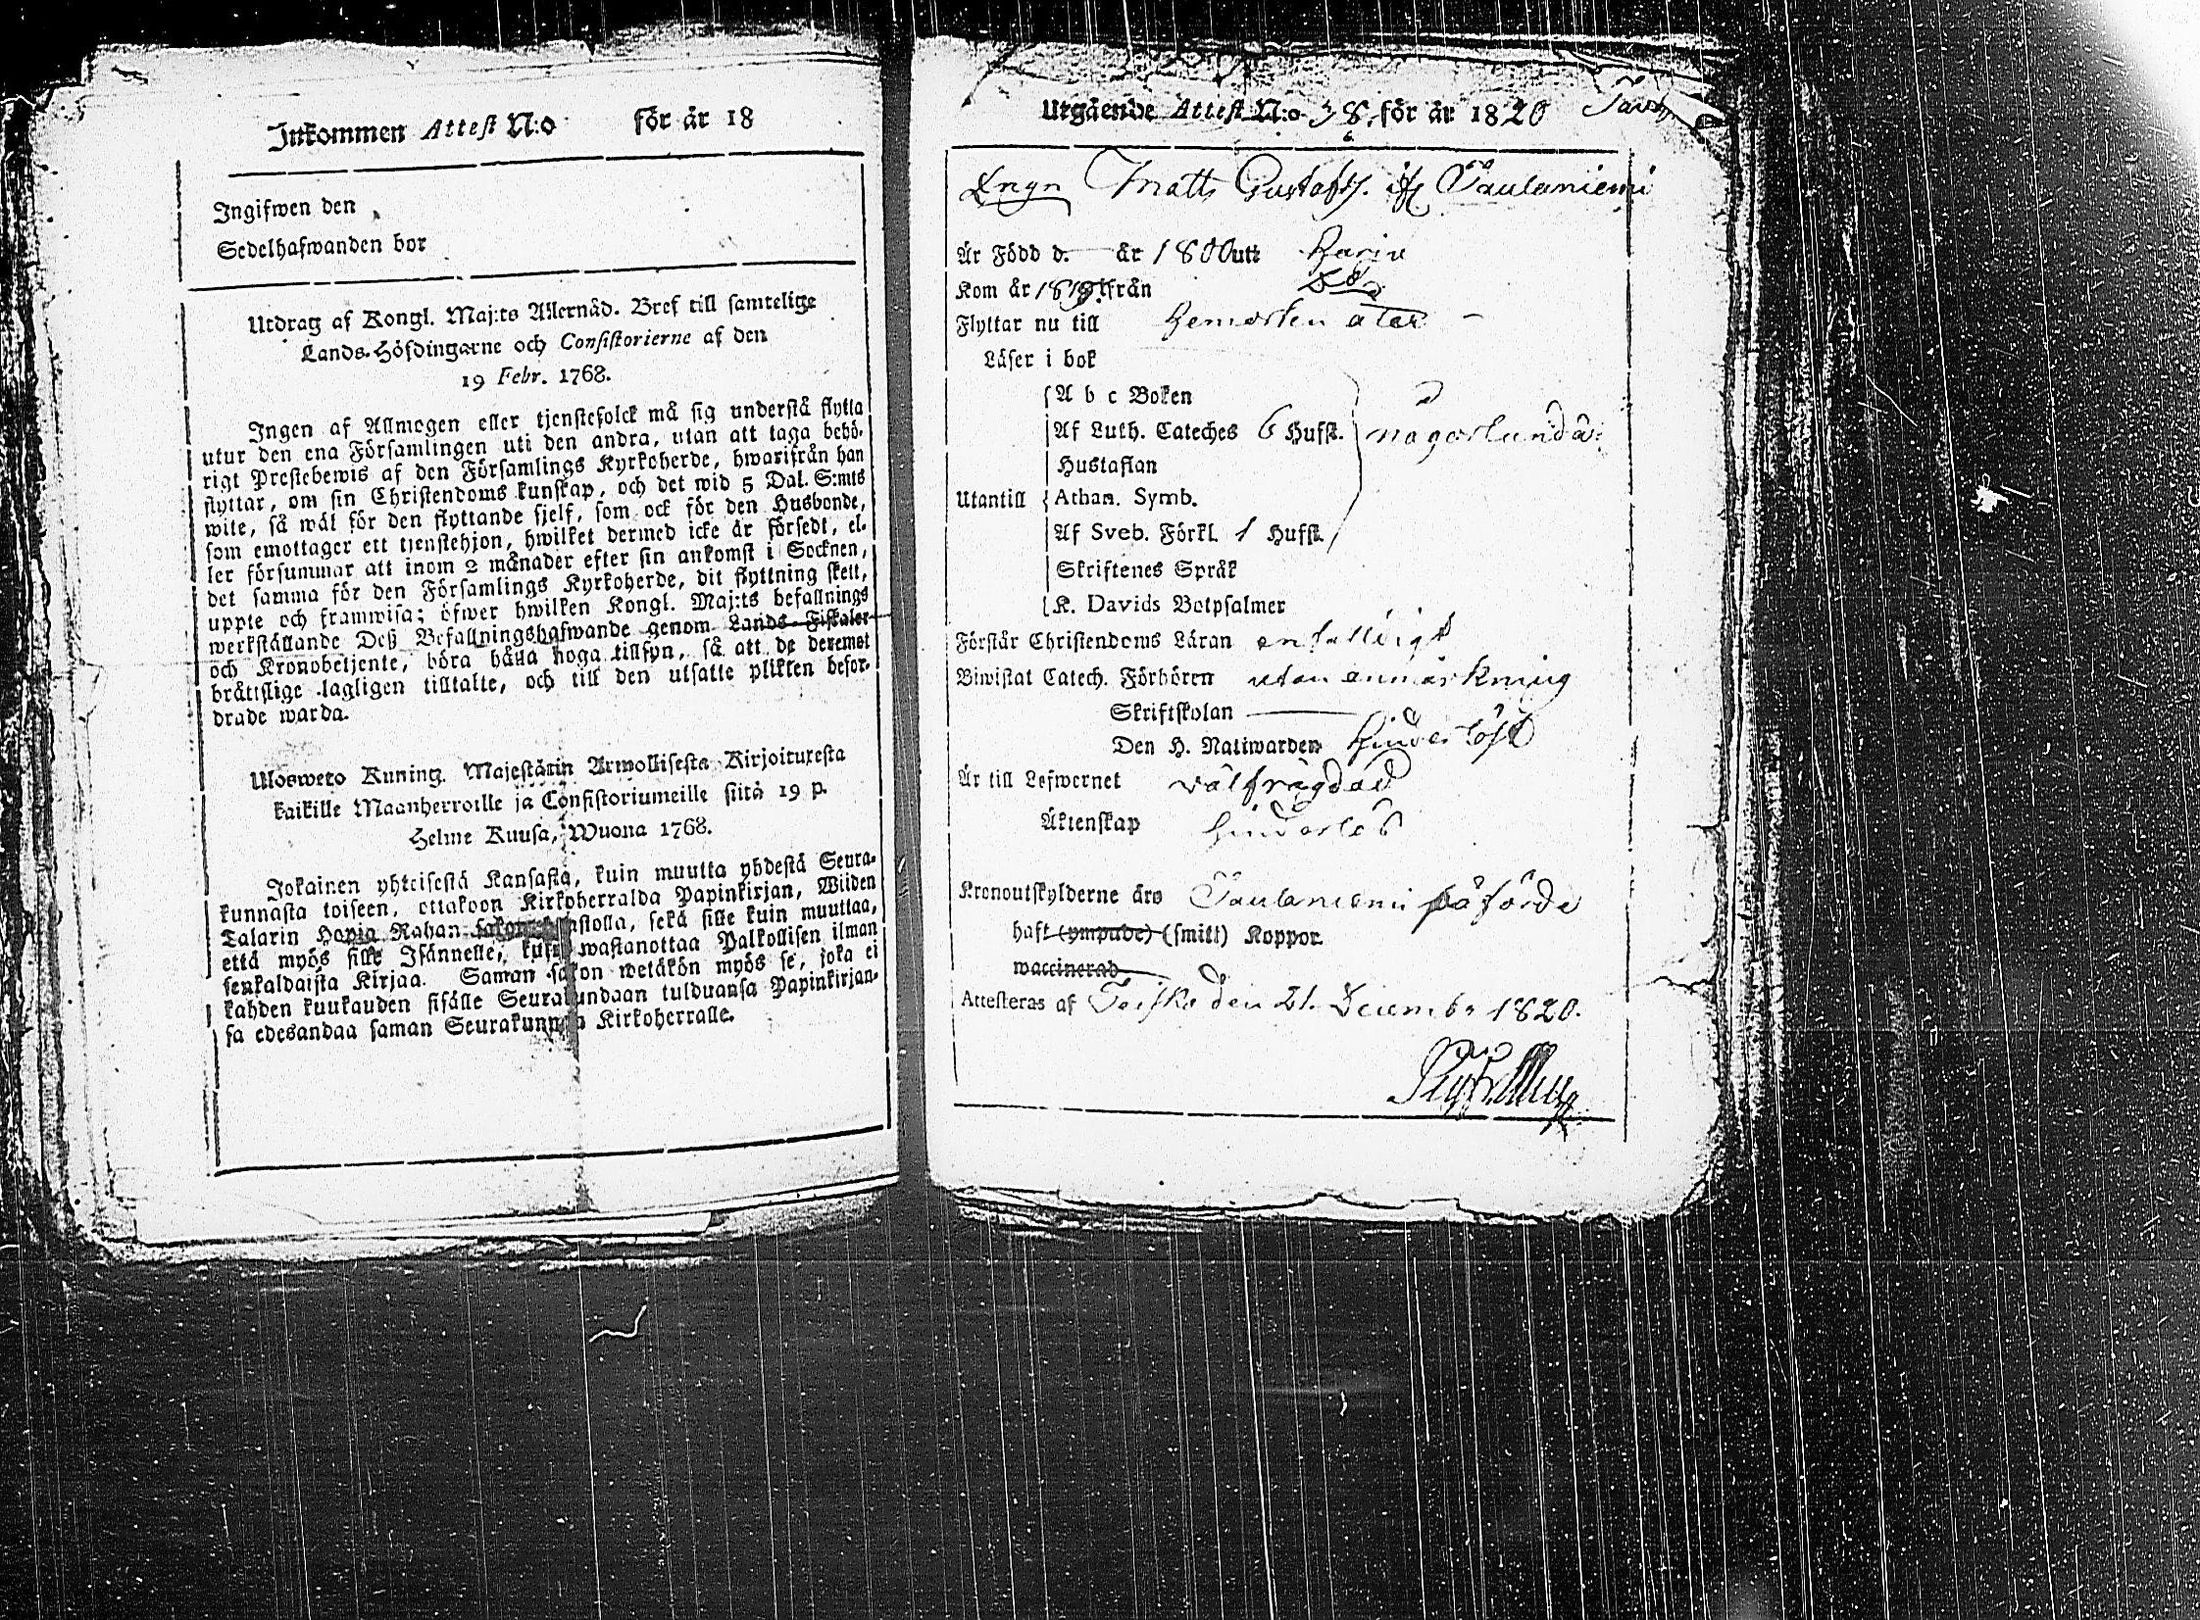 Inkommen Attest N:o för år 18
Ingifwen den
Sedelhafwanden bor
Utdrag af Kongl. Maj:ts Allernåd. Bref till samtelige
Lands-Höfdingarne och Consistorierne af den
19 Febr. 1768.
Ingen af Allmogen eller tjenstefolck må sig understå flytta
utur den ena Församlingen uti den andra, utan att taga behö-
rigt Prestebewis af den Församlings Kyrkoherde, hwarifrån han
flyttar, om sin Christendoms kunskap, och det wid 5 Dal. S:mts
wite, så wäl för den flyttande sjelf, som ock för den Husbonde,
som emottager ett tjenstehjon, hwilket dermed icke är försedt, el-
ler försummar att inom 2 månader efter sin ankomst i Socknen,
det samma för den Församlings Kyrkoherde, dit flyttning skett,
uppte och framwisa; öfwer hwilken Kongl. Maj:ts befallnings
werkställande Deß Befallningshafwande genom Lands-Fiskaler
och Kronobetjente, böra hålla noga tillsyn, så att de deremot
bråttslige lagligen tilltalte, och till den utsatte plikten befor-
drade warda.
Ulosweto Kuning. Majestätin Armollisesta Kirjoituxesta
kaikille Maanherroille ja Consistoriumeille siitä 19 p.
Helme Kuusa, Wuona 1768.
Jokainen yhteisestä Kansasta, kuin muutta yhdestä Seura-
kunnasta toiseen, ottakoon Kirkoherralda Papinkirjan, Wiiden
Talarin Hopia Rahan sekä sille kuin muuttaa,
että myös sille Isännelle, kuin wastanottaa Palkollisen ilman
senkaldaista Kirjaa. Saman sakon wetäkön myös se, joka ei
kahden kuukauden sisälle Seurakundaan tulduansa Papinkirjan-
sa edesandaa saman Seurakunnan Kirkoherralle.
Utgående Attest N:o 38. för år 1820
Drgn Matts Gustafss. ifr Paulaniemi
Är Född d. — år 1800 uti
Kom år 1819 ifrån
Flyttar nu till Hemorten åter —
Läser i bok
A b c Boken
Af Luth. Cateches 6 Hufst. någorlunda
Hustaflan
Utantill Athan. Symb.
Af Sveb. Förkl. 1 Hufst.
Skriftenes Språk
K. Davids Botpsalmer
Förstår Christendoms Läran enfalldigt
Biwistat Catech. Förhören utan anmärkning
Skriftskolan —
Den H. Nattwarden hinderlöst
Är till Lefwernet välfrägdad
Äktenskap hinderlös
Kronoutskylderne äro Paulaniemi påförde
haft (ympade) (smitt) Koppor.
waccinerad
Attesteras af Teisko den 21. December 1820.